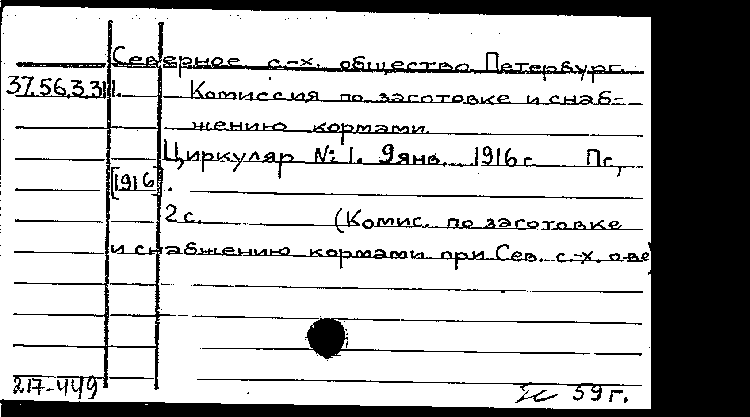 Северное с.-х. общество Петербург.
37.56.3.31. Комиссия по заготовке и снаб-
жению кормами.
Циркуляр №1. 9 янв. 1916 г. Пг.,
[1916].
2 с. (Комис. по заготовке
и снабжению кормами при Сев. с.-х. о-ве)
217-449 59 г.